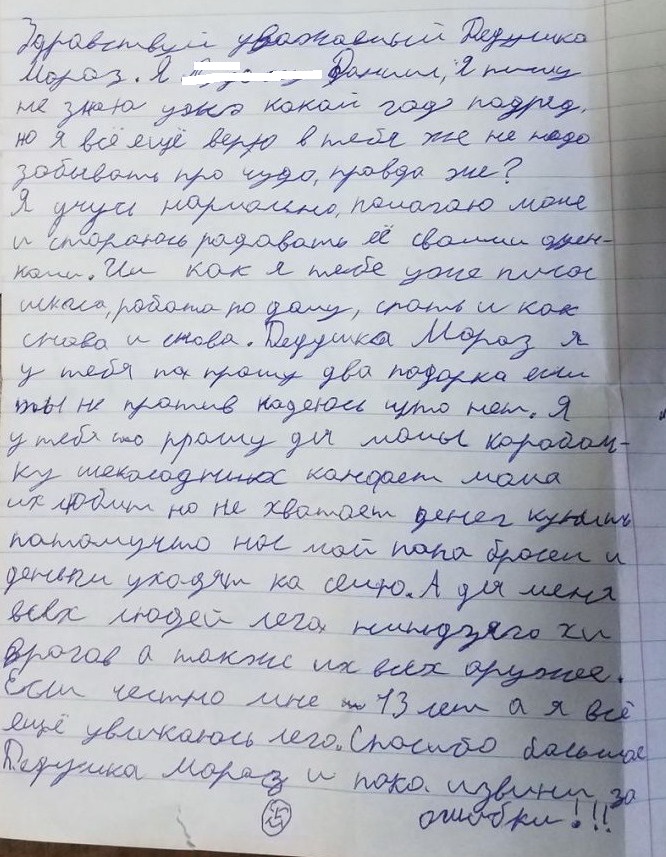 Здравствуй уважаемый Дедушка
Мороз. Я Даниил, Я пишу
не знаю уже какой год подряд,
но я всё ещё верю в тебя же не надо
забывать про чудо, правда же?
Я учусь нармально, памагаю маме
и стараюсь радавать её своими оцен-
ками. Ни как я тебе уже писал
школа, работа по дому, спать и как
снова и снова. Дедушка Мороз я
у тебя па прашу два подарка если
ты не против надеюсь что нет. Я
у тебя по прашу для мамы карабом-
ку шеколадных канфет мама
их любит но не хватает денег купить
патамучто нас мой папа бросил и
деньги уходят на семю. А для меня
всех людей лего ниндзяго хи
врагов а также их всех оружее.
Если честно мне 13 лет а я всё
ещё увликаюсь лего. Спасибо большое
Дедушка Мороз и пока извини за
ошибки!!!